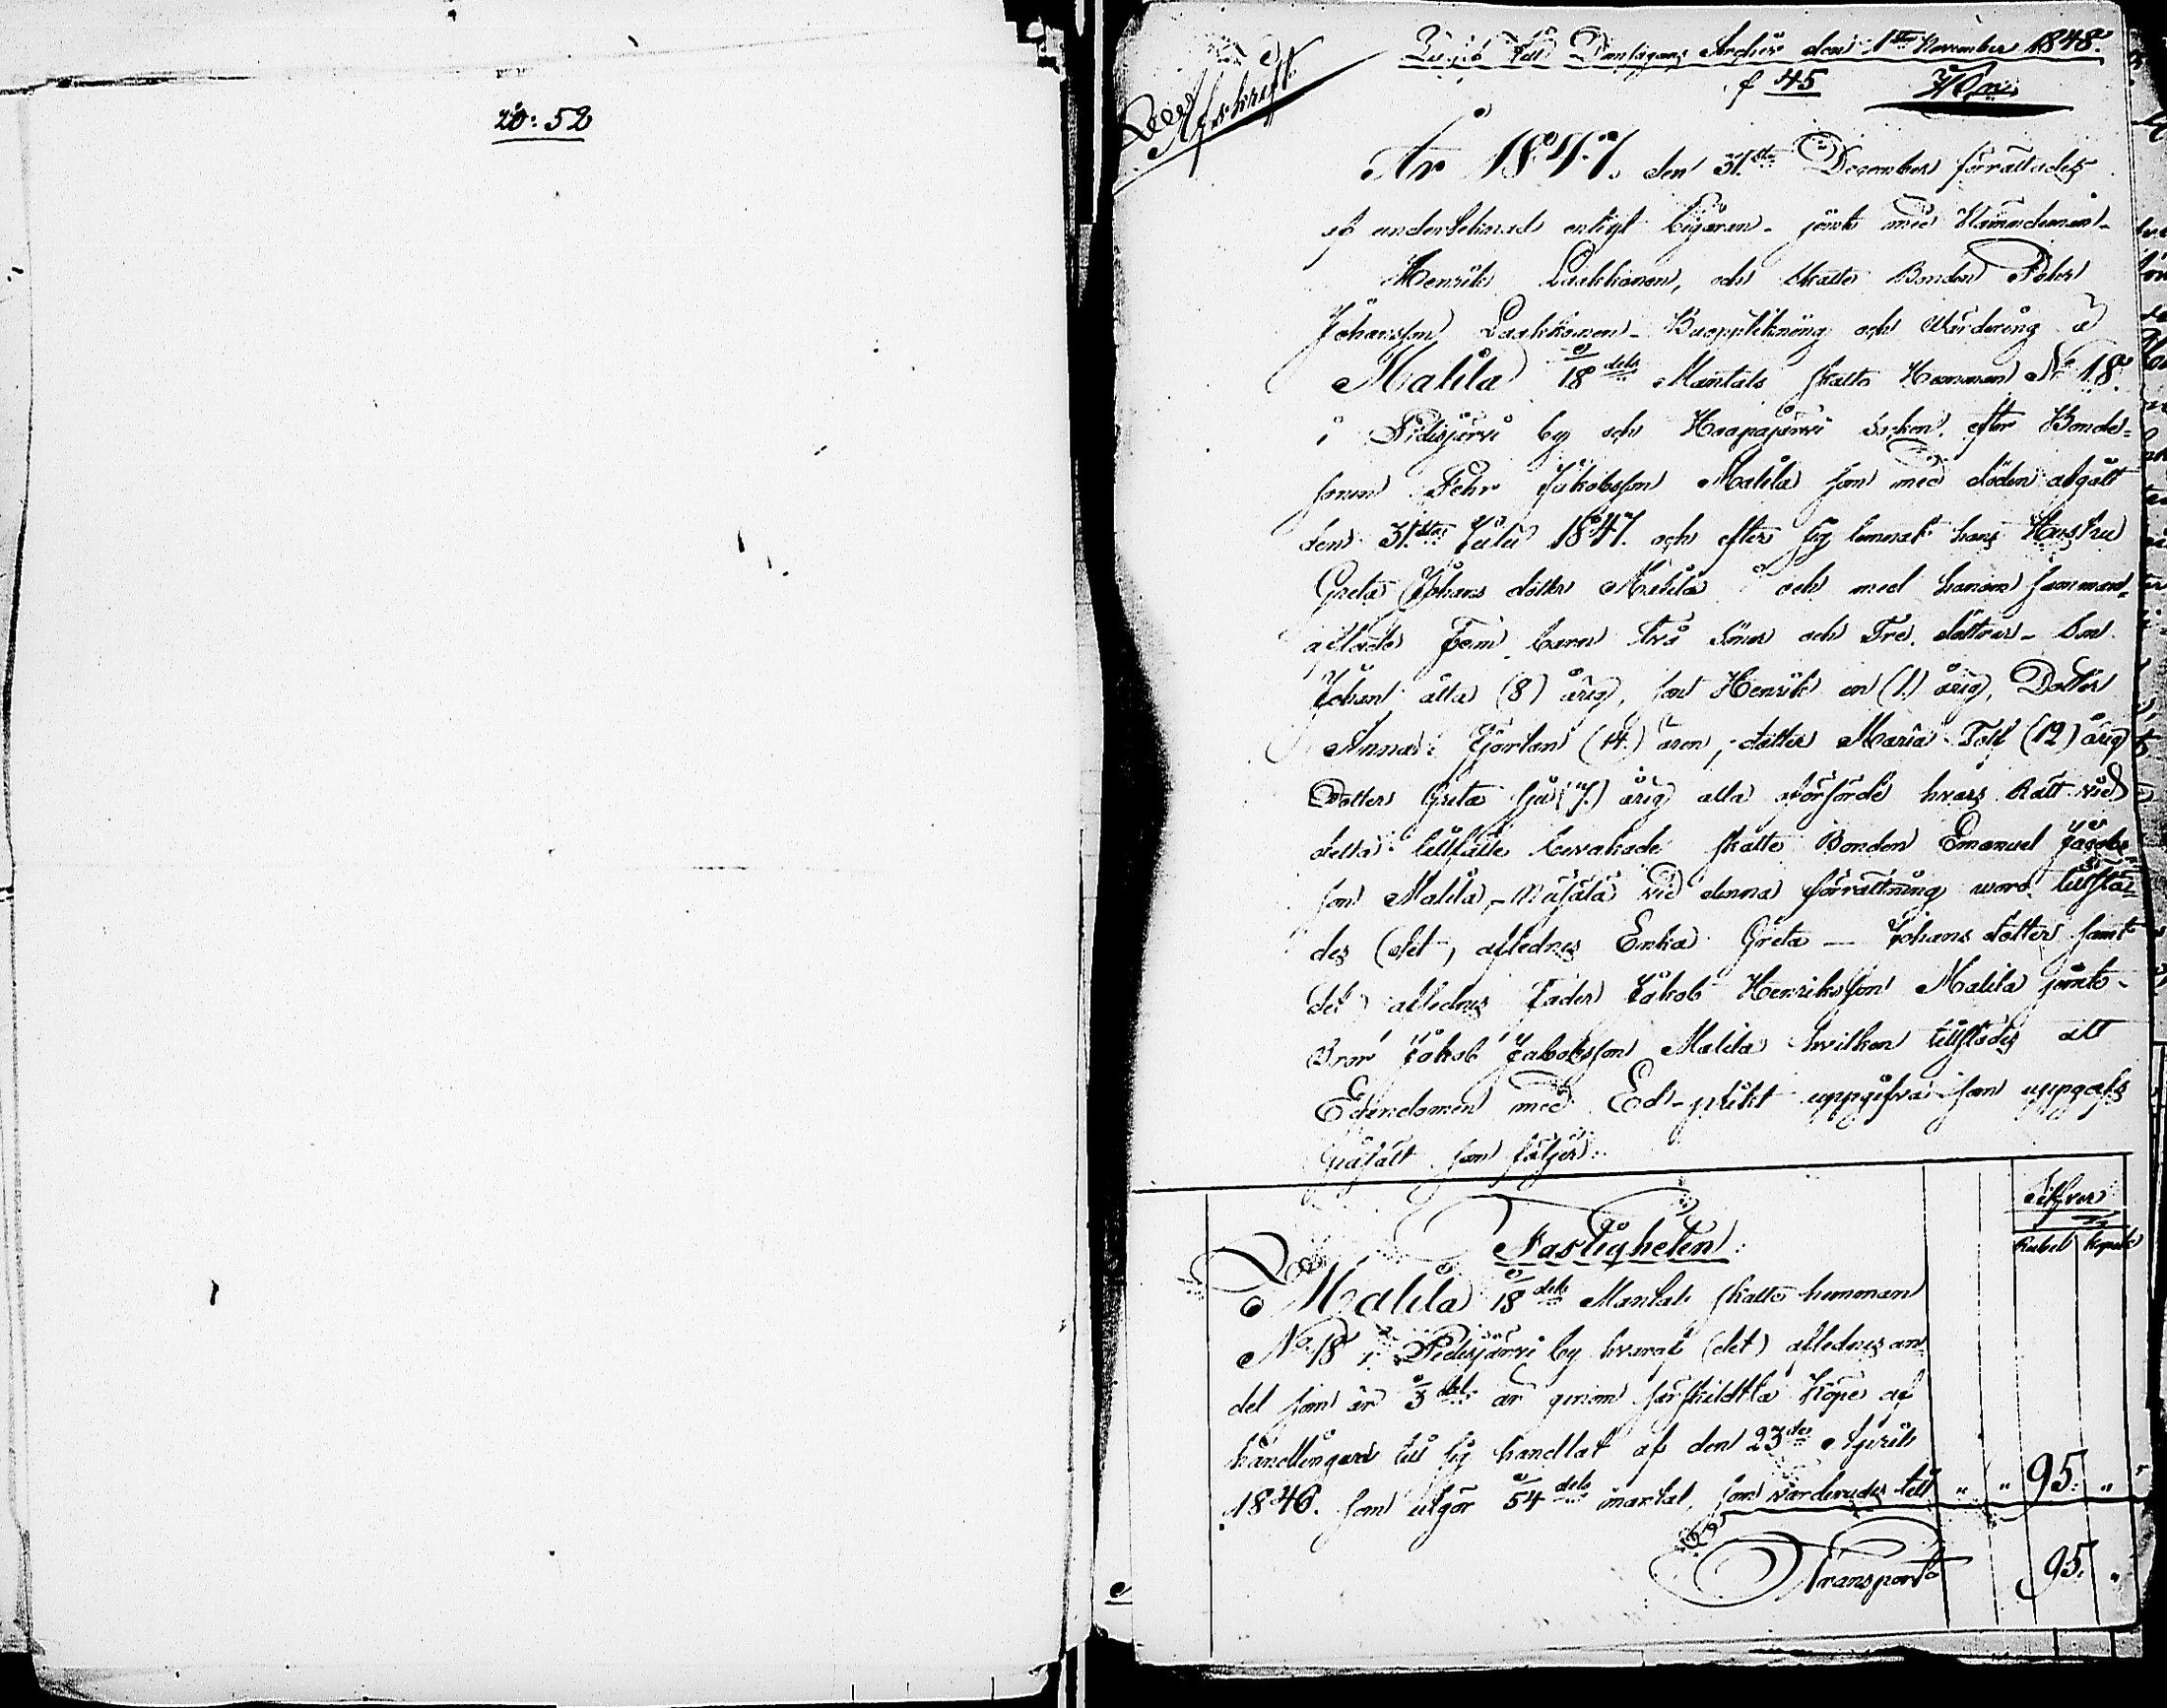 20: 52
Afskrift
den 1sta November 1848.
f 45
År 1847. den 31sta December förrättades
af undertecknad enligt begäran jemte med Nämndeman
Henrik Laakkonen, och Skatte Bonden Pehr
Johansson Laakkonen Bouppteckning och Värdering å
Malila 1/18 dels Mantals skatte Hemman No 18
i Pidisjärvi by och Haapajärvi Socken efter Bonde-
sonen Pehr Jakobsson Malila som med döden afgått
den 31sta Julii 1847. och efter sig lemnat hans Hustru
Greta Johans dotter Malila och med honom samman-
aflade Fem barn två Söner och Tre döttrar. Son
Johan åtta (8) årig, son Henrik en (1) årig, Dotter
Anna fjorton (14) åren, dotter Maria Tolf (12) årig
Dotter Greta sju (7) årig alla oförsörde hvars Rätt vid
detta tillfälle bevakade skatte Bonden Emanuel Jacobs
son Malila, Nifåla vid denna förrättning word tillstä-
des (det) aflednes Enka Greta Johans dotter samt
det aflednes Fader Jakob Henriksson Malila jemte
Bror Jakob Jakobsson Malila hvilken tillstädes att
Egendomen med Ed-plikt uppgifva som uppgafs
påsätt som följer:
Silfver
Rubel Kopek
Fastigheten:
Malila 1/18 dels Mantals skatte hemman
No 18 i Pidisjärvi by hvaraf (det) aflednes an-
del som är 1/3 del är genom särskildta köpe af
handlingar till sig handlat af den 23de April
1846. som utgör 1/54 dels mantal, som värderades till " " 95. "
Transport 95. "